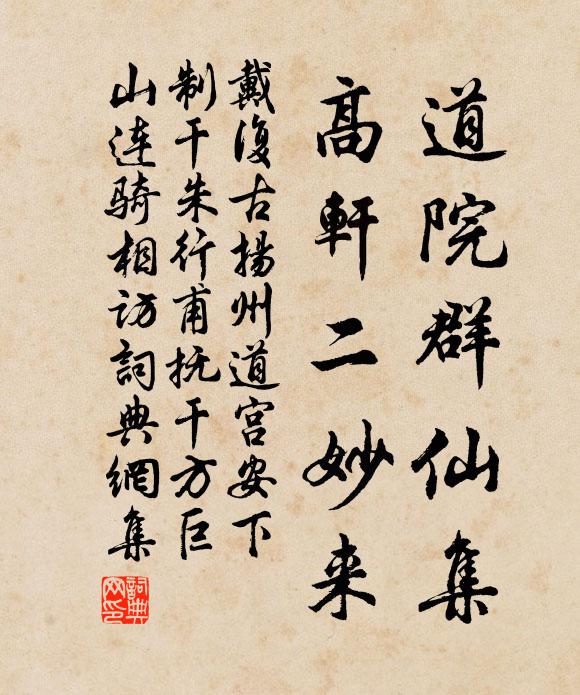 道院群仙集
高軒二妙来
戴復古揚州道宮安下
制干朱行甫抚干方巨
山连骑相访詞典網集
詞典网印